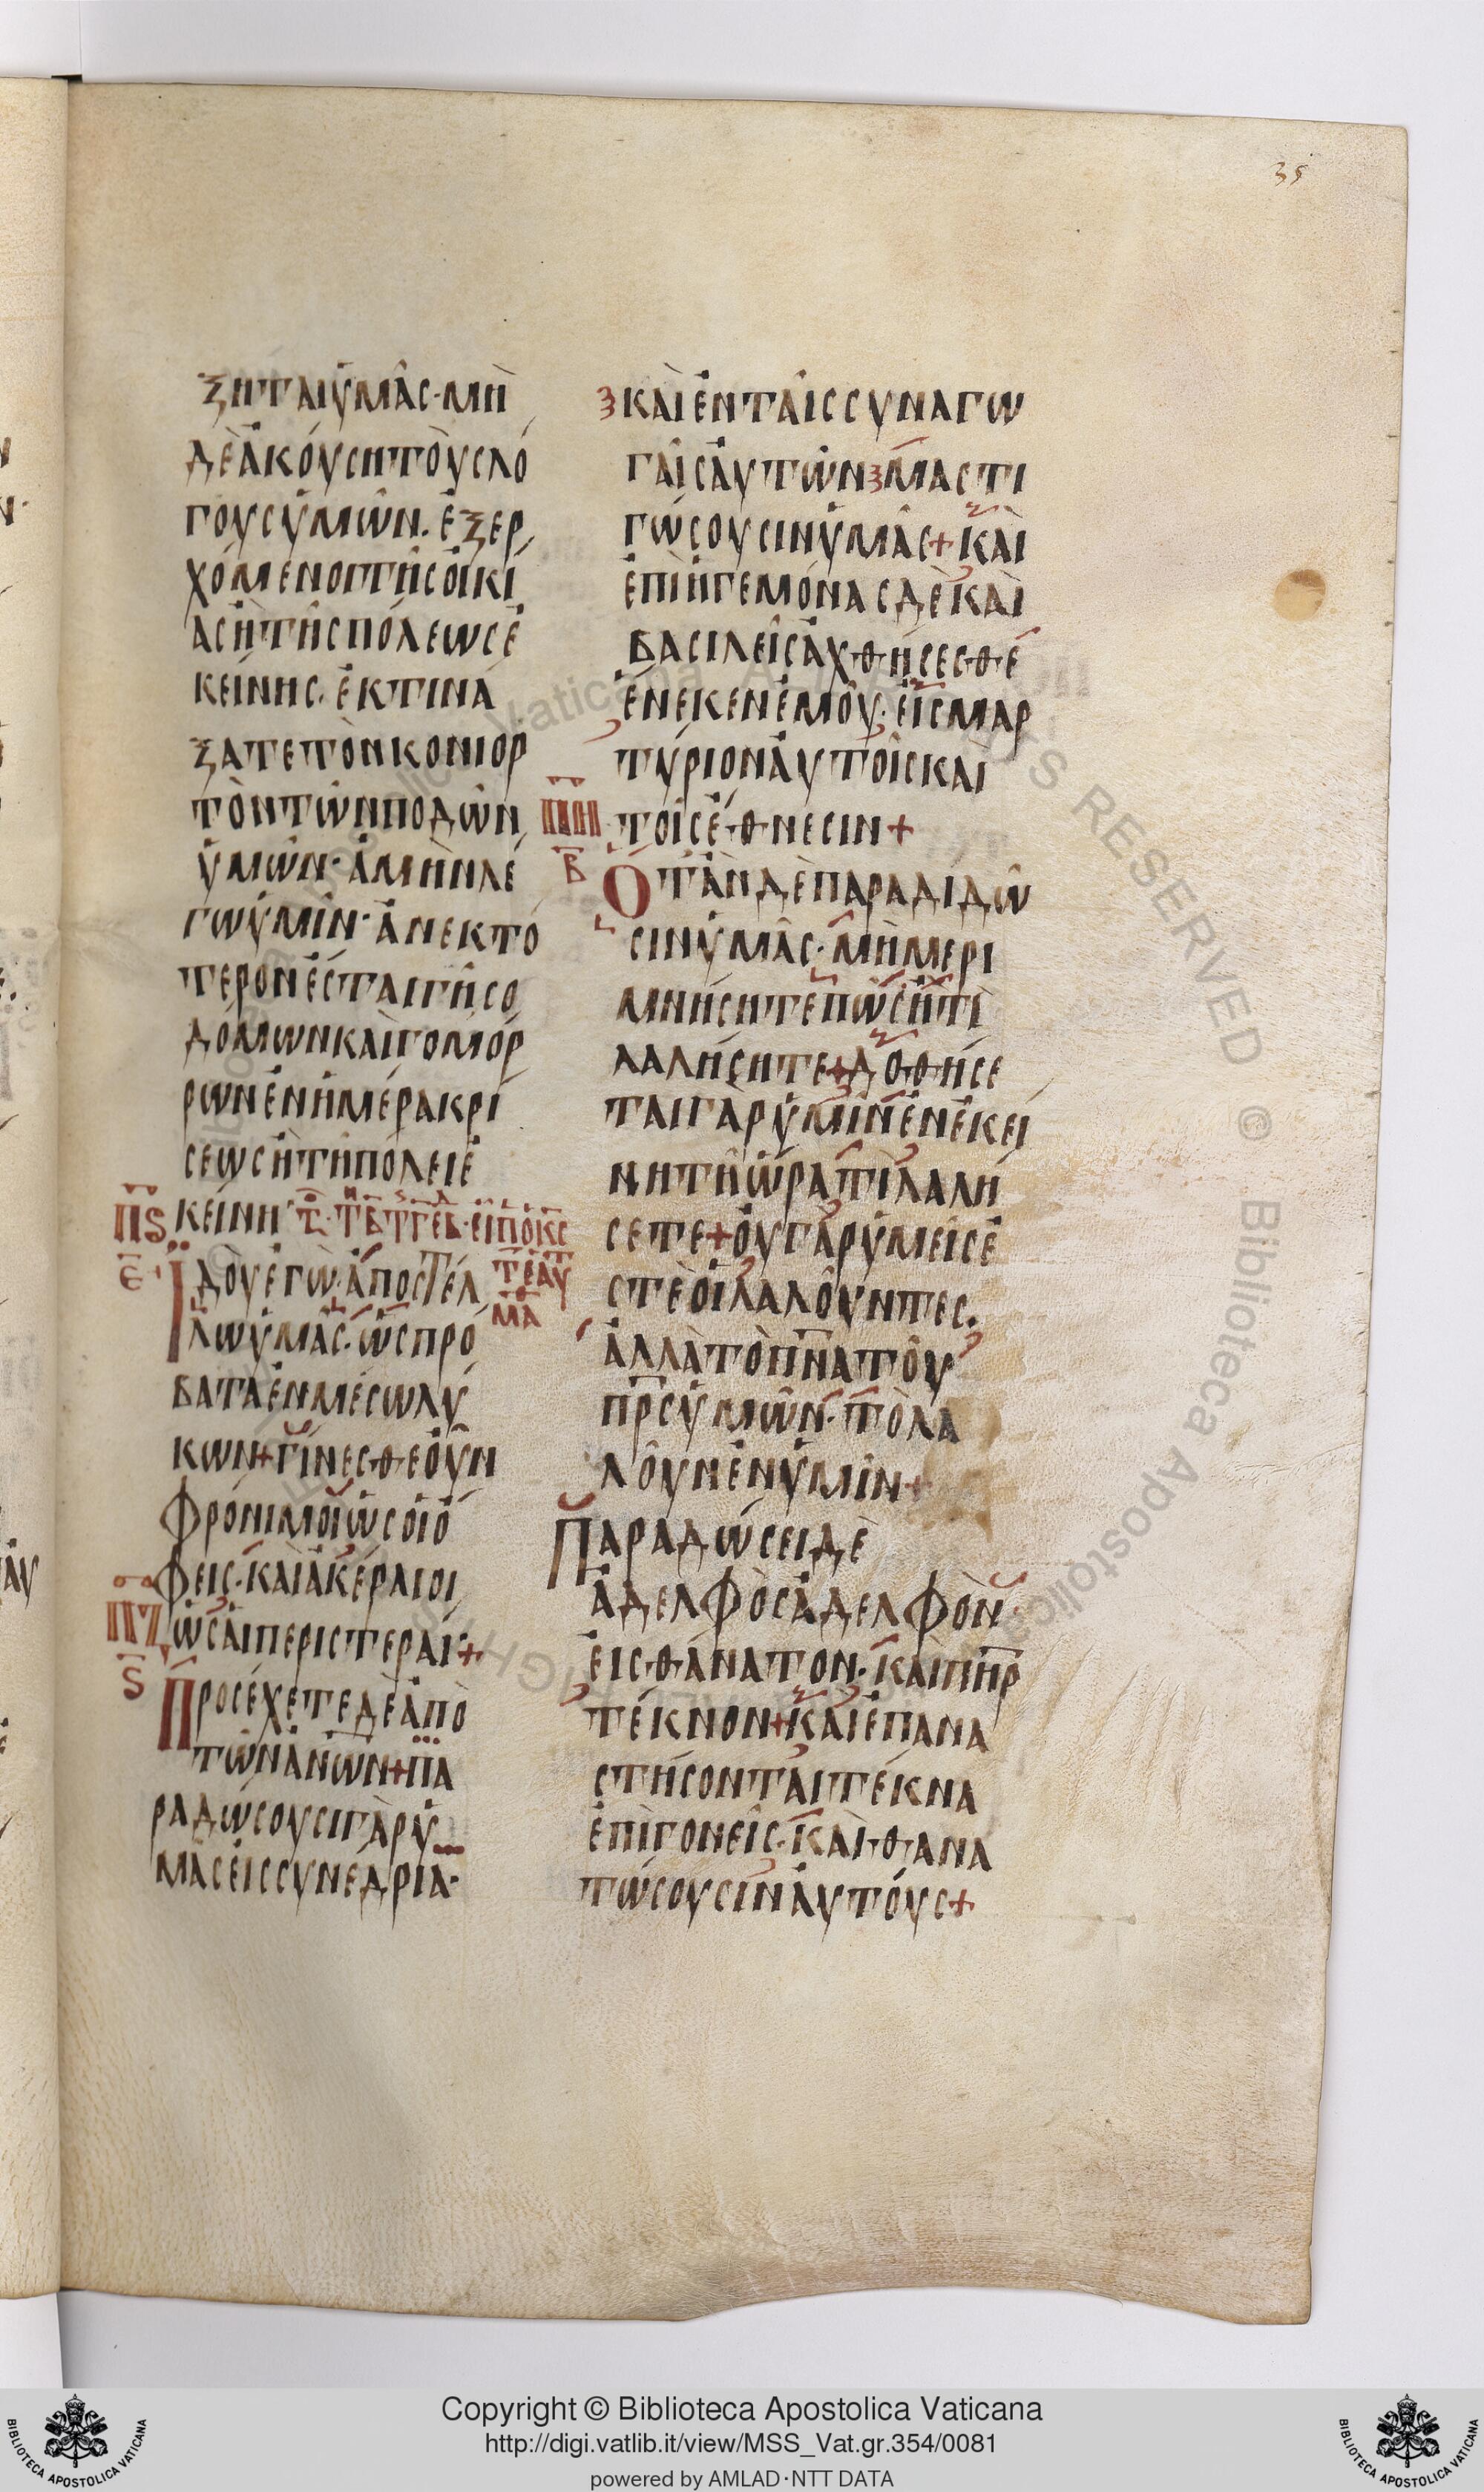 35
ξηται ὑμᾶς· μὴ
δὲ ἀκούση τοὺς λό
γους ὑμῶν· ἐξερ
χόμενοι τῆς οἰκί
ας ἢ τῆς πόλεως ἐ
κείνης· ἐκτινά
ξατε τὸν κονιορ
τὸν τῶν ποδῶν
ὑμῶν· ἀμὴν λέ
γω ὑμῖν· ἀνεκτό
τερον ἔσται γῆ σο
δόμων καὶ γομόρ
ρων ἐν ἡμέρα κρί
σεως ἢ τῆ πόλει ἐ
πς κείνη
ε Ἰδοὺ ἐγὼ· ἀποστέλ
λω ὑμᾶς· ὡς πρό
βατα ἐν μέσω λύ
κων + γίνεσθε οὖν
φρόνιμοι ὡς οἱ ὄ
φεις· καὶ ἀκέραιοι
πζ ὡς αἱ περιστεραί· +
ς Προσέχετε δὲ ἀπὸ
τῶν ἀν̅ων + πα
ραδώσουσι γὰρ ὑ
μᾶς εἰς συνέδρια·
καὶ ἐν ταῖς συναγω
γαῖς αὐτῶν μαστι
γώσουσιν ὑμᾶς + καὶ
ἐπὶ ἡγεμόνας δὲ καὶ
βασιλεῖς ἀχθήσεσθε
ἕνεκεν ἐμοῦ· εἰς μαρ
τύριον αὐτοῖς καὶ
πη τοῖς ἔθνεσιν +
β Ὅταν δὲ παραδιδῶ
σιν ὑμᾶς· μὴ μερι
μνήσητε πῶς ἢ τί
λαλήσητε + δοθήσε
ται γὰρ ὑμῖν ἐν ἐκεί
νη τῆ ὥρα τί λαλή
σετε + οὐ γὰρ ὑμεῖς ἐ
στὲ οἱ λαλοῦντες.
ἀλλὰ τὸ πν̅α τοῦ
πρ̅ς ὑμῶν· τὸ λα
λοῦν ἐν ὑμῖν +
Παραδώσει δὲ
ἀδελφὸς ἀδελφὸν
εἰς θάνατον· καὶ πηρ̅
τέκνον + καὶ ἐπανα
στήσονται τέκνα
ἐπὶ γονεῖς· καὶ θανα
τώσουσιν αὐτούς +
Copyright © Biblioteca Apostolica Vaticana
http://digi.vatlib.it/view/MSS_Vat.gr.354/0081
powered by AMLAD·NTT DATA
BIBLIOTECA APOSTOLICA VATICANA
BIBLIOTECA APOSTOLICA VATICANA